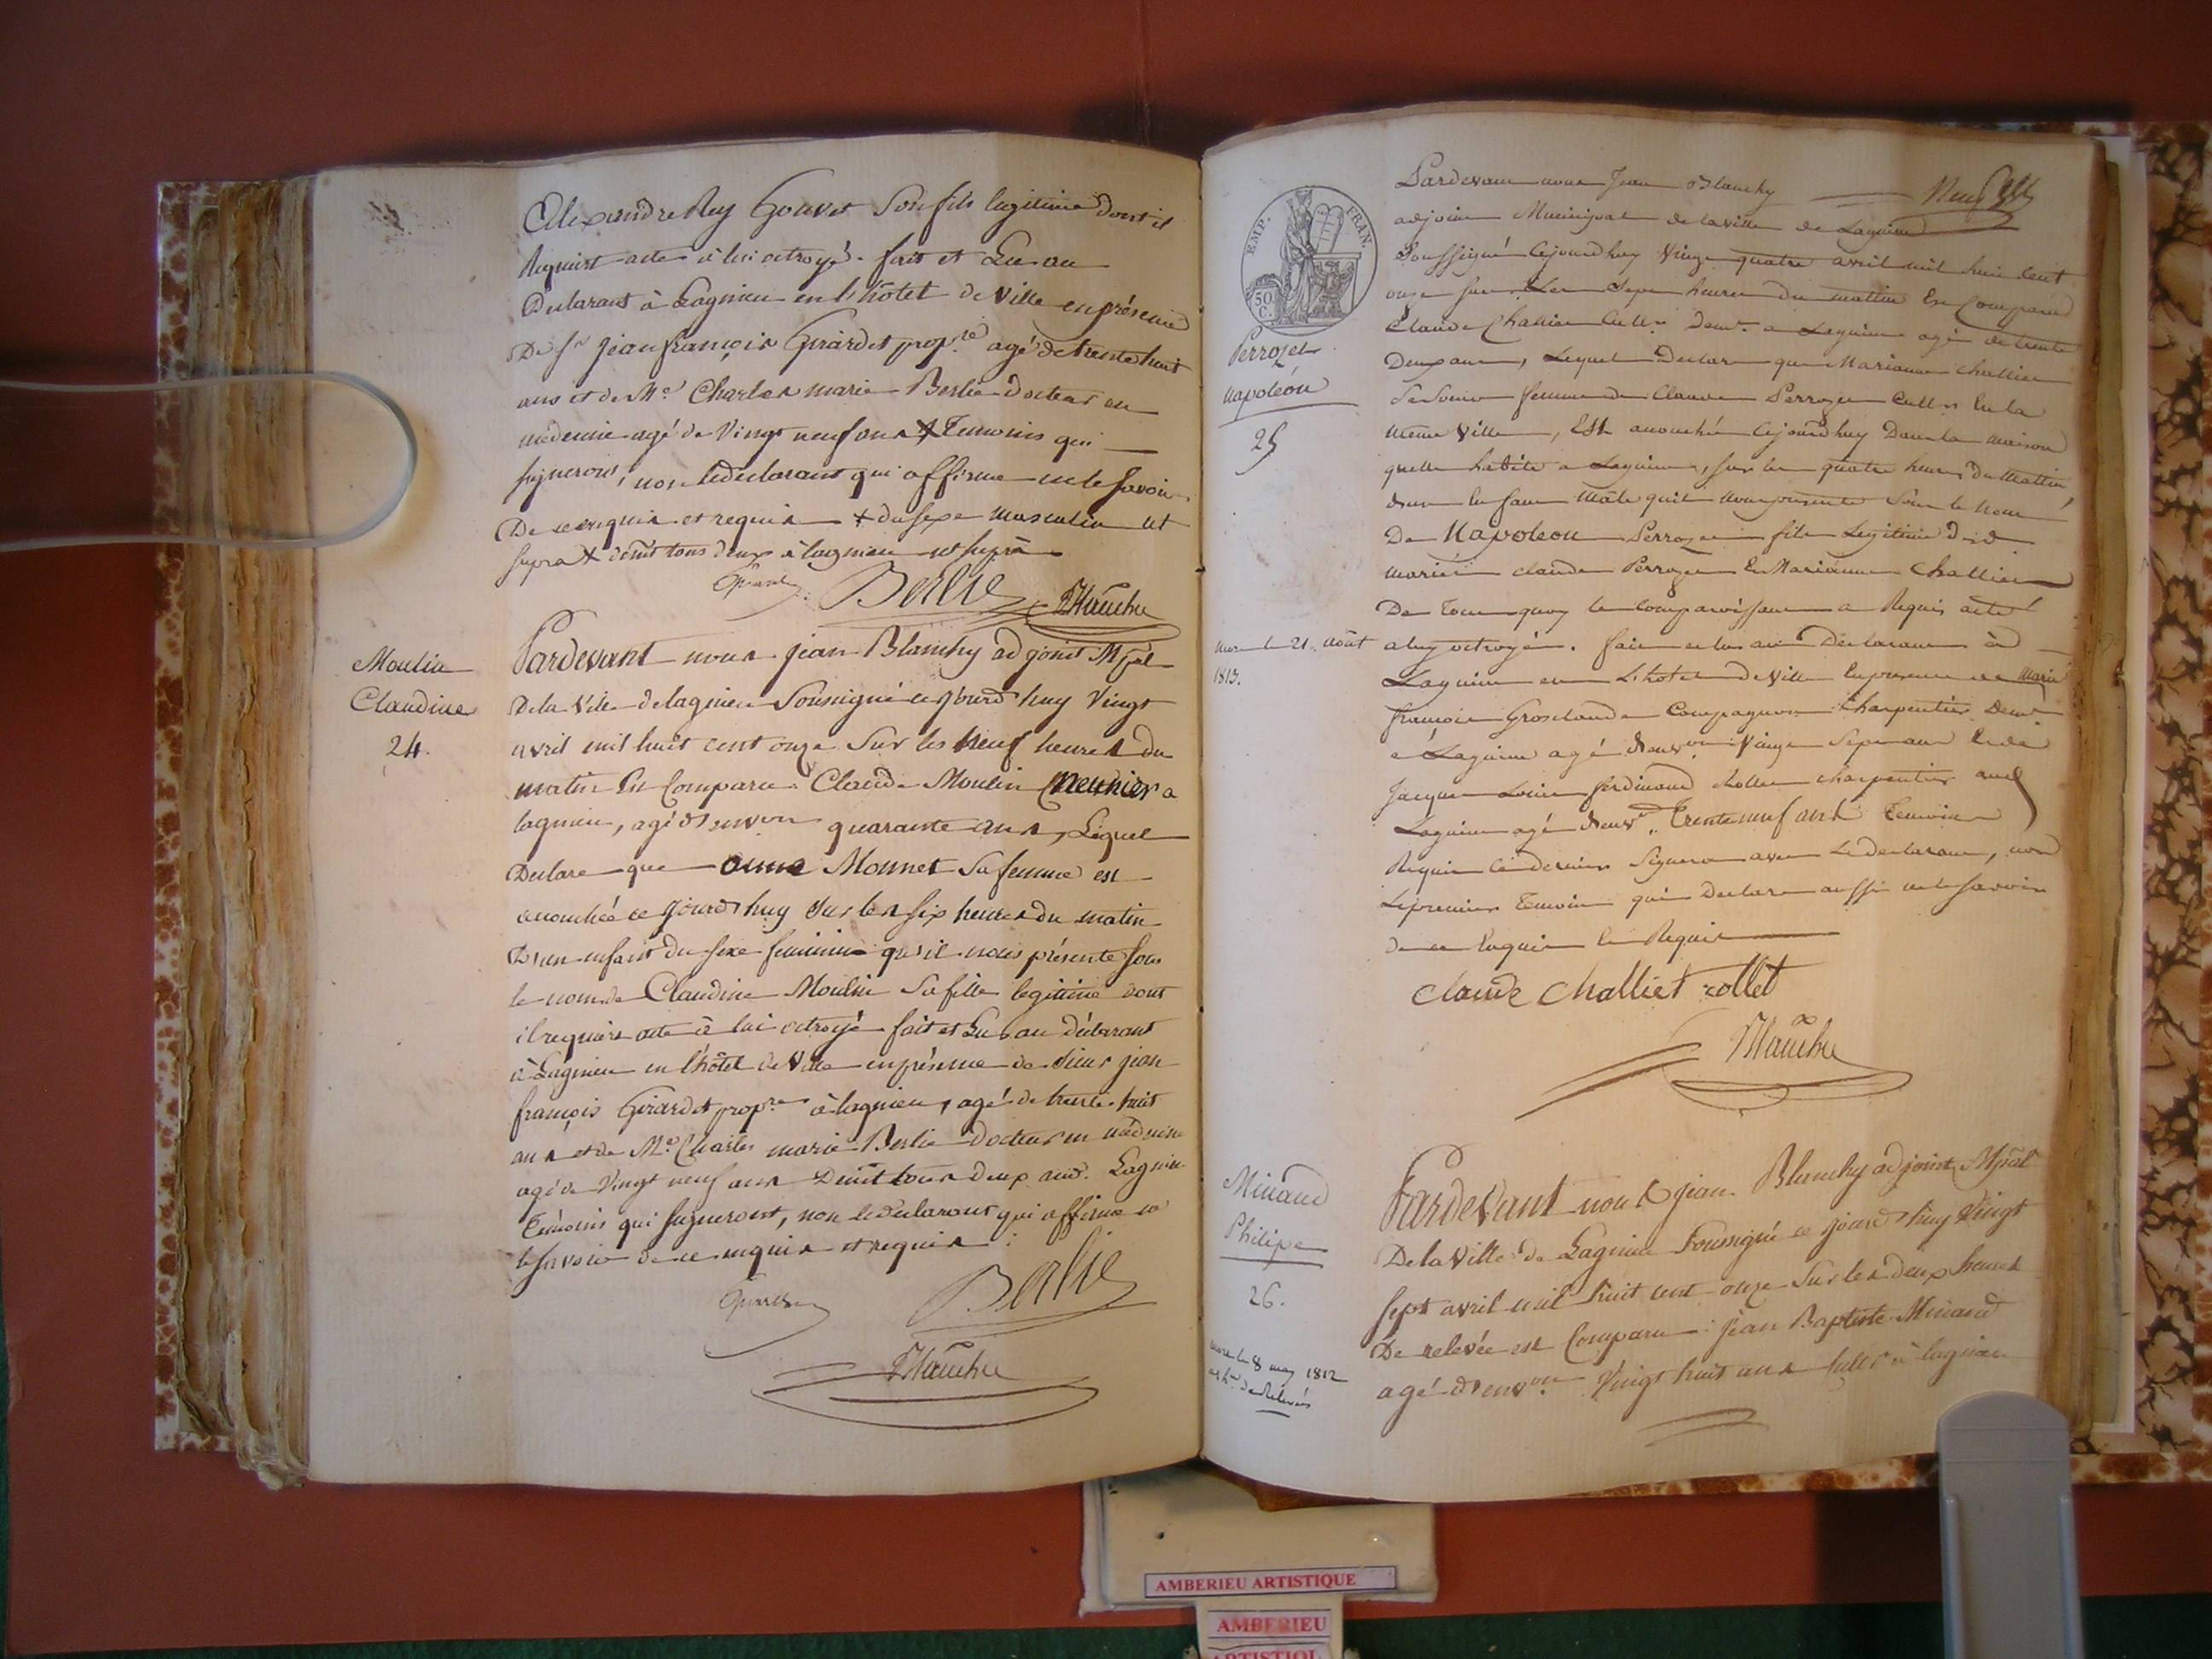 Alexandre Rey Gouvet Son fils legitime dont il
Requiert acte à lui octroyé. fait et Lu au
Declarant à Lagnieu en l'hôtel de Ville en présence
De Sr jean françois Girardet prop.re agé de trente huit
ans et de Me Charles marie Berlie docteur en
médecine agé de Vingt neuf ans X Temoins qui
signeront, non le declarant qui affirme ne le Savoir
De ce enquis et requis X du sexe masculin ut
supra X demt tous deux à lagnieu ut suprà
Berlie Blanchy
Moulin
Claudine
24.
Pardevant nous jean Blanchy adjoint Mpal
De la Ville de lagnieu Soussigné ce jourd'huy Vingt
avril mil huit cent onze Sur les Neuf heures du
matin Est Comparu Claude Moulin Meunier a
lagnieu, agé d'environ quarante ans, Lequel
Declare que anne Monnet Sa femme est
accouchée ce jourd'huy Sur les six heures du matin
D'un enfant du sexe feminin qu'il nous présente sous
le nom de Claudine Moulin Sa fille legitime dont
il requiert acte à lui octroyé fait et Lu au déclarant
à Lagnieu en l'hôtel de Ville en présence de Sieur jean
françois Girardet prop.re à lagnieu, agé de trente huit
ans et de Me Charles marie Berlie docteur en médecine
agé de Vingt neuf ans Demt tous deux aud. Lagnieu
Témoins qui signeront, non le declarant qui affirme ne
le savoir de ce enquis et requis.
Berlie
Blanchy
EMP. FRAN.
50 C.
Perrozet
Napoléon
25
mort le 21 août
1813.
Pardevant nous Jean Blanchy
adjoint Municipal de la ville de Lagnieu
Soussigné Cejourdhuy Vingt quatre avril mil huit Cent
onze sur Les Sept heures du mattin Est Comparu
Claude Challiet Cultr demt a Lagnieu agé de trente
Deux ans, Lequel Declare que Marianne Challiet
Sa Soeur femme de Claude Perrozet Cultr En la
même Ville, Est accouchée Cejourd'huy Dans la maison
quelle habite a Lagnieu, sur les quatre heures du Mattin,
dun Enfant Mâle quil nous presente Sous le nom
De Napoleon Perrozet fils Legitime d
mariés claude Perrozet Et Marianne Challiet
De tout quoy le Comparoissant a Requis acte
a luy octroyé. fait et lu au Declarant à
Lagnieu en L'hotel de Ville En presence de Marie
françois Grosclaude Compagnon Charpentier Demt
a Lagnieu agé denvon Vingt Sept ans Et de
Jacque Louis ferdinand Rollet charpentier aud
Lagnieu agé denvon Trente neuf ans Temoins
Requis le dernier Signera avec Le declarant, non
Le premier Temoin qui Declare aussi ne le savoir
de ce Enquis Et Requis
Claude Challiet rollet
Blanchy
Minand
Philipe
26.
mort le 8 may 1812
Pardevant nous jean Blanchy adjoint Mpal
De la Ville de Lagnieu Soussigné ce jourd'huy Vingt
sept avril mil huit cent onze Sur les deux heures
De relevée est Comparu jean Baptiste Minand
agé d'environ Vingt huit ans cultr à lagnieu
AMBERIEU ARTISTIQUE
AMBERIEU
ARTISTIQU